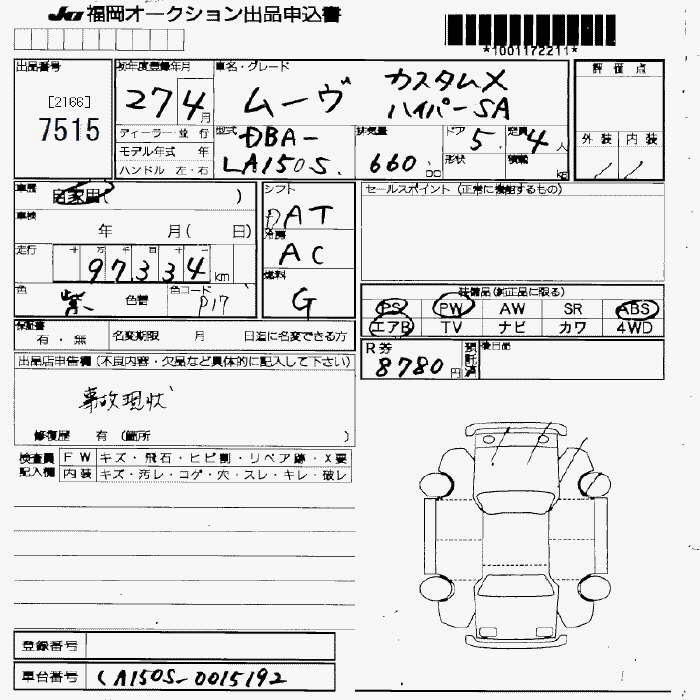 JU 福岡オークション出品申込書
*1001172211*
出品番号
[2166]
7515
初年度登録年月
27 4月
車名・グレード
ムーヴ カスタムX
ハイパーSA
評価点
外装 内装
ディーラー 並行
モデル年式 年
ハンドル 左・右
型式
DBA-
LA150S
排気量
660 cc
ドア
5
定員
4人
形状
積載
kg
車歴
自家用( )
車検
年 月( 日)
走行
十 万 千 百 十 一
97334 km
色
紫 色替
色コード
P17
シフト
DAT
冷房
AC
燃料
G
セールスポイント(正常に機能するもの)
装備品(純正品に限る)
PS PW AW SR ABS
エアB TV ナビ カワ 4WD
R券
8780円
預託済
後日品
保証書
有・無
名変期限 月 日迄に名変できる方
出品店申告欄(不良内容・欠品など具体的に記入して下さい)
事故現状
修復歴 有(箇所 )
検査員
記入欄
FW キズ・飛石・ヒビ割・リペア跡・X要
内装 キズ・汚レ・コゲ・穴・スレ・キレ・破レ
登録番号
車台番号 LA150S-0015192